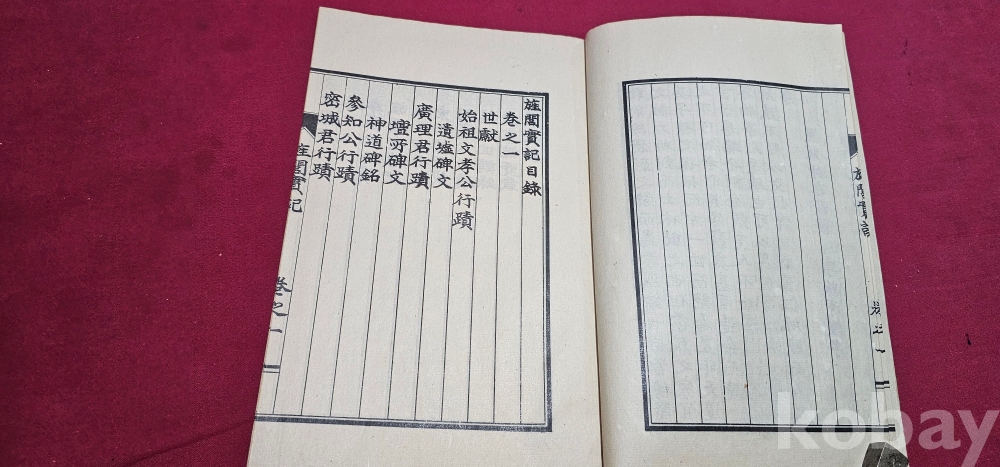 旌閭實記目錄
卷之一
世獻
始祖文孝公行蹟
遺墟碑文
廣理君行蹟
壇所碑文
神道碑銘
參知公行蹟
密城君行蹟
旌閭實記
卷之一
kobay